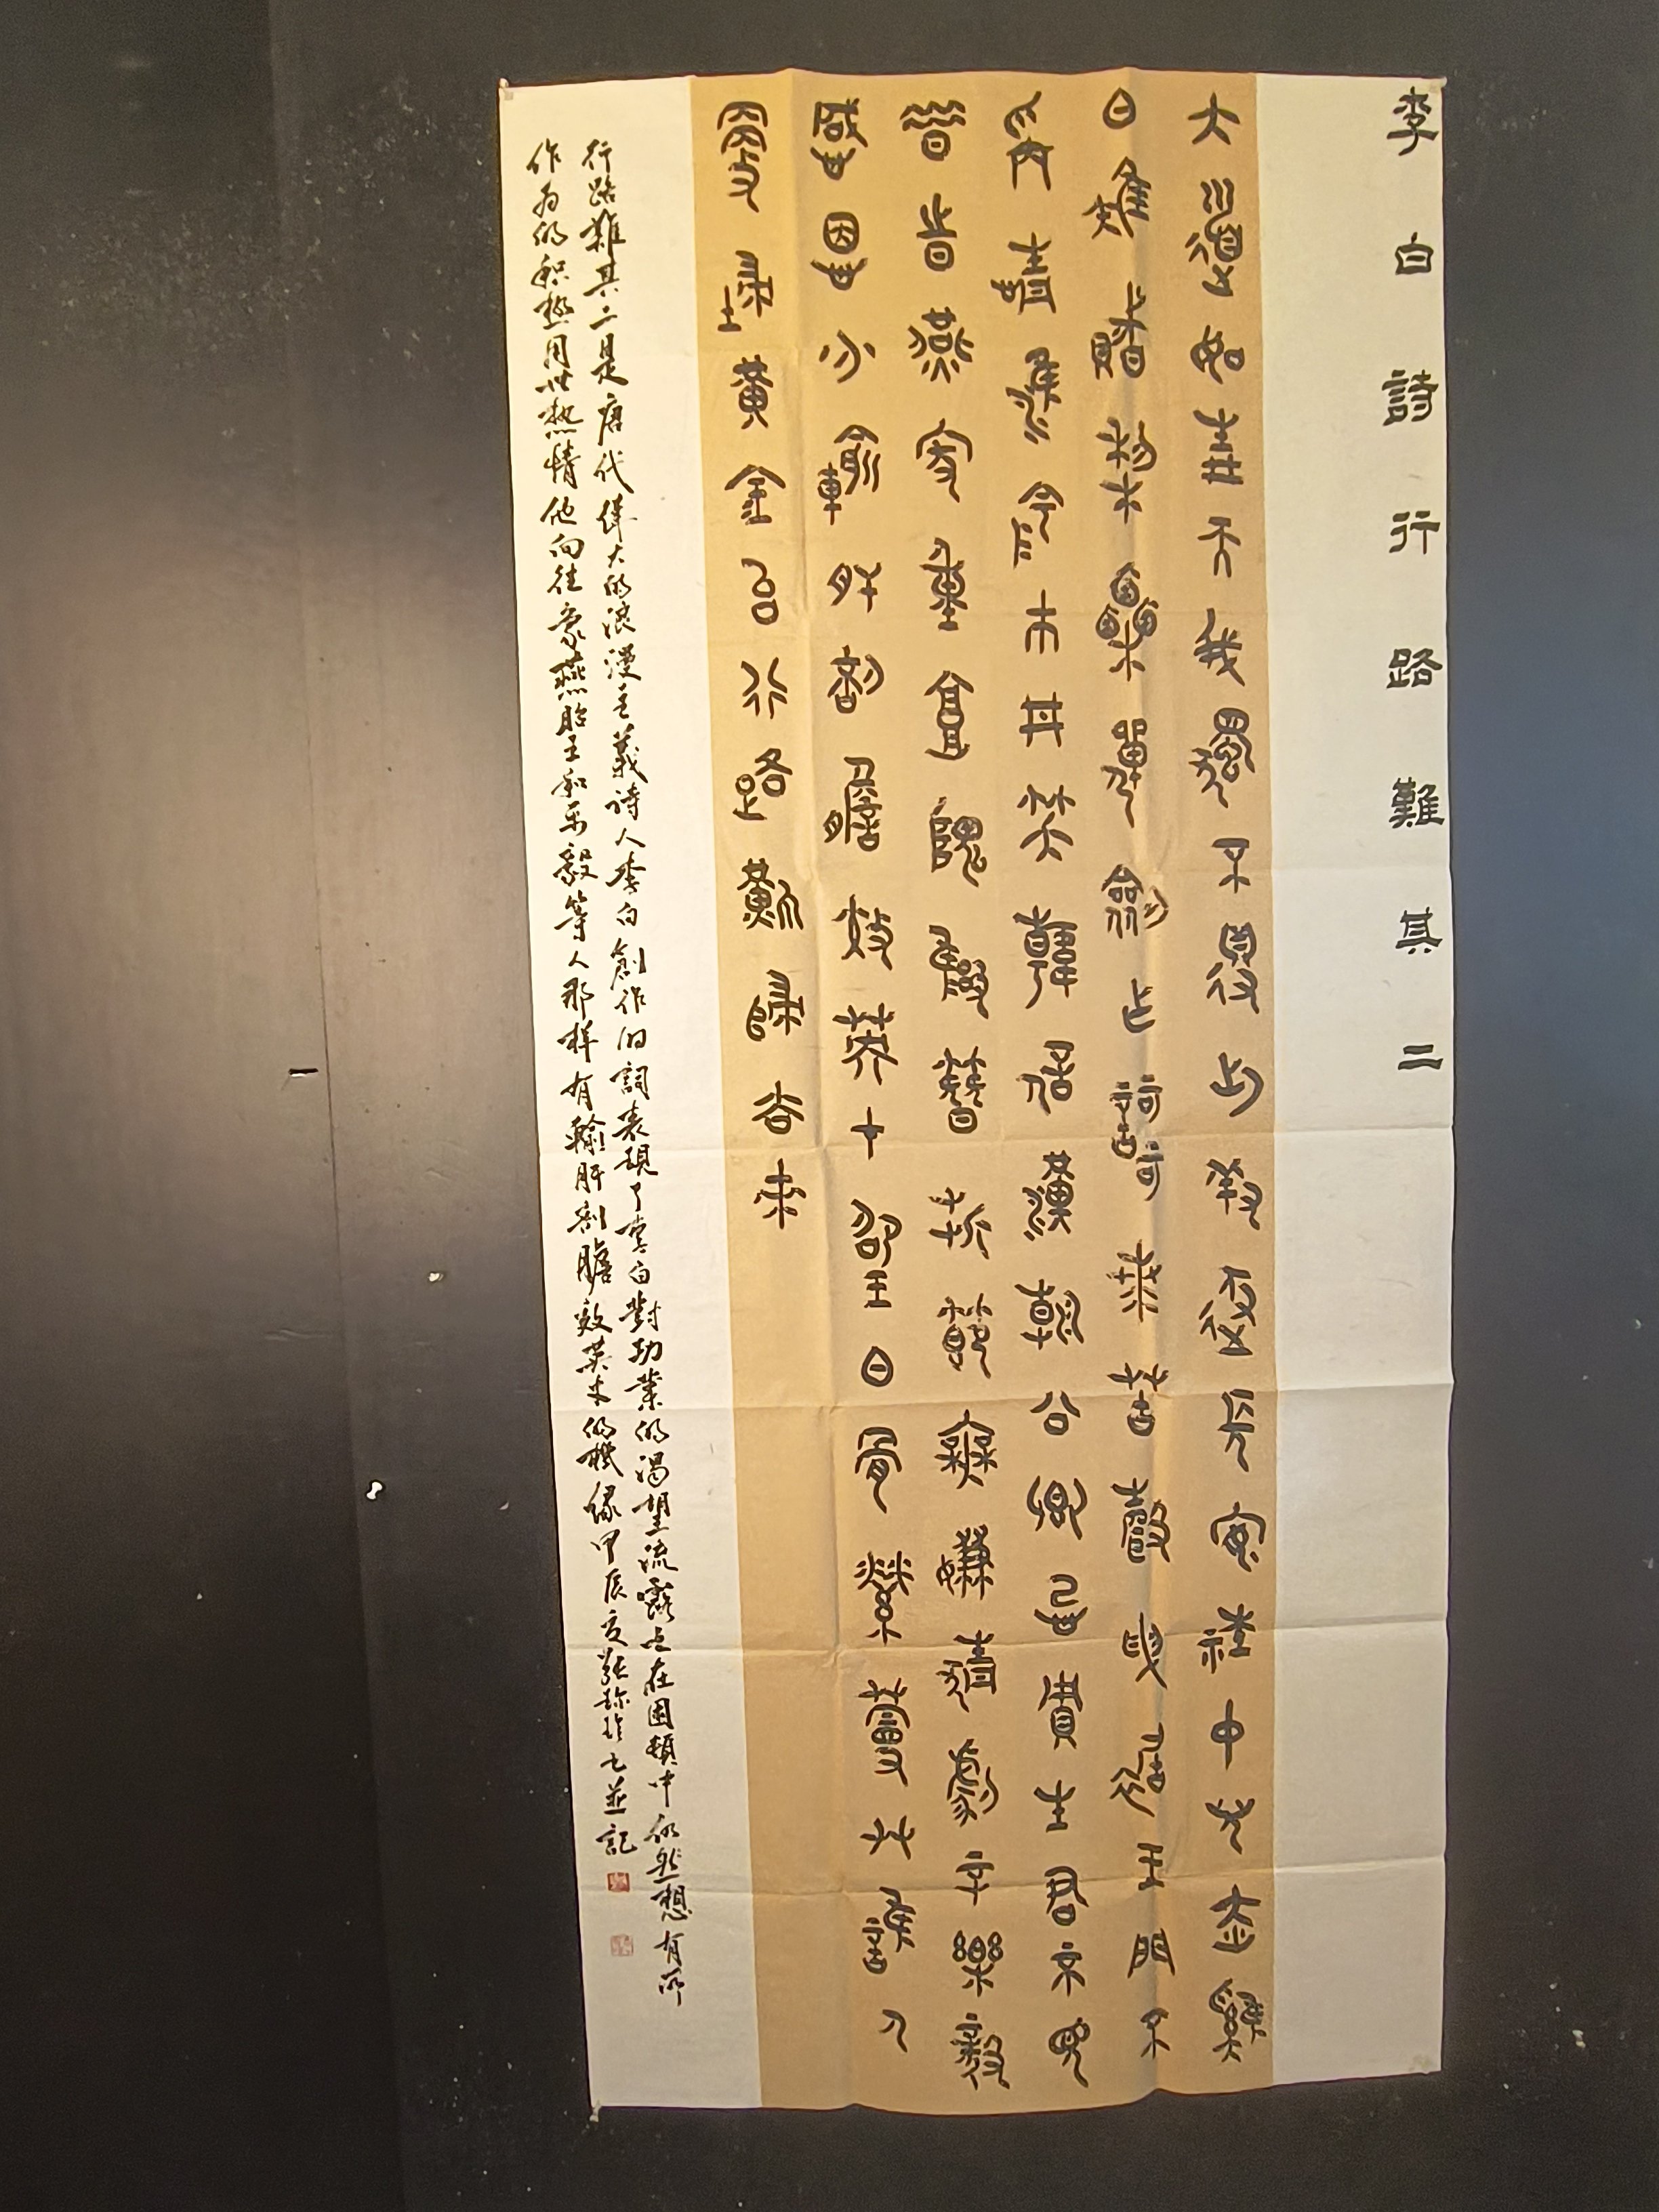 李白詩行路難其二
大道如青天我獨不得出羞逐長安社中兒赤雞
白雉賭梨栗彈劍作歌奏苦聲曳裾王門不
稱情淮陰市井笑韓信漢朝公卿忌賈生君不見
昔時燕家重郭隗擁篲折節無嫌猜劇辛樂毅
感恩分輸肝剖膽效英才昭王白骨縈蔓草誰人
更掃黃金臺行路難歸去來
行路難其二是唐代偉大的浪漫主義詩人李白創作的詞表現了李白對功業的渴望流露出在困頓中仍然想有所
作为的积極用世热情他向往象燕昭王和乐毅等人那样有輸肝剖膽效英才的機緣甲辰夏並記